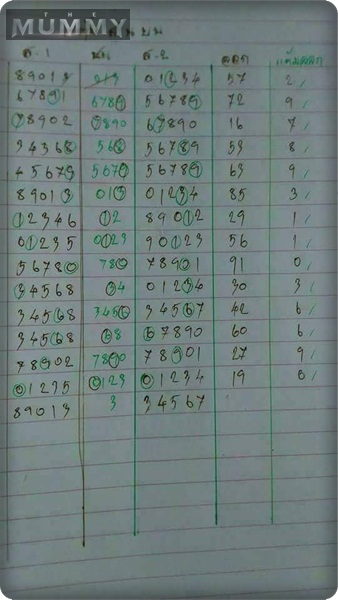 THE
MUMMY
บน
ส.1 ชน ส.2 ออก
89013 013 01234 57 2
67891 6789 56789 72 9
78902 7890 67890 16 7
34368 568 56789 53 8
45679 5679 56789 63 9
89013 013 01234 85 3
12346 12 89012 29 1
01235 0123 90123 56 1
56780 780 78901 91 0
34568 34 01234 30 3
34568 3456 34567 42 6
34568 68 67890 60 6
78902 7890 78901 27 9
01235 0123 01234 19 0
89013 3 34567